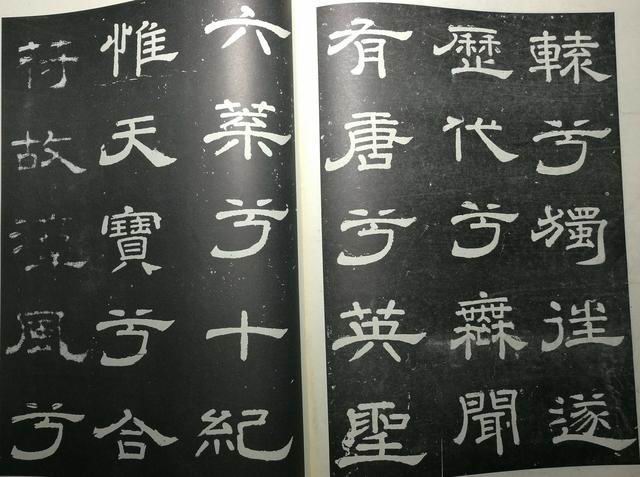 轅兮獨往遂
歷代兮無聞
有唐兮英聖
六葉兮十紀
惟天寶兮合
符故風兮